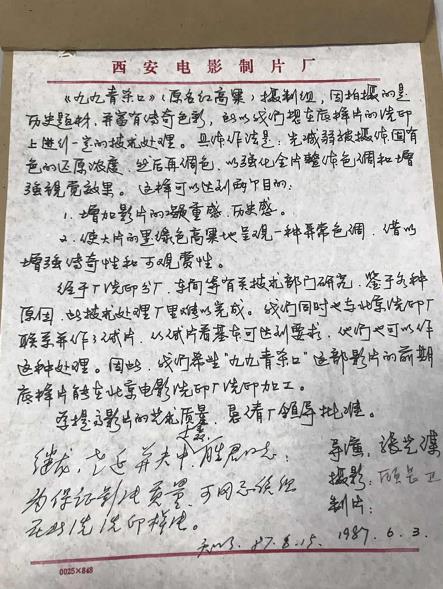 西安电影制片厂
《九九青杀口》（原名红高粱）摄制组，因拍摄的是
历史题材，并富有传奇色彩，所以我们想在底样片的洗印
上进行一定的技术处理。具体作法是：先减弱被摄体固有
色的还原浓度，然后再调色，以强化全片整体色调和增
强视觉效果。这样可以达到两个目的：
1. 增加影片的凝重感、历史感。
2. 使大片的墨绿色高粱地呈现一种异常色调，借以
增强传奇性和可观赏性。
经与厂洗印分厂、车间等有关技术部门研究，鉴于各种
原因，此技术处理厂里难以完成。我们同时也与北京洗印厂
联系并作了试片，从试片看基本可达到要求，他们也可以作
这种处理。因此，我们希望“九九青杀口”这部影片的前期
底样片能在北京电影洗印厂洗印加工。
为提高影片的艺术质量，恳请厂领导批准。
导演：张艺谋
摄影：顾长卫
制片：
1987.6.3.
为保证影片质量，可同意
洗印样片。
87.6.15.
0025×848